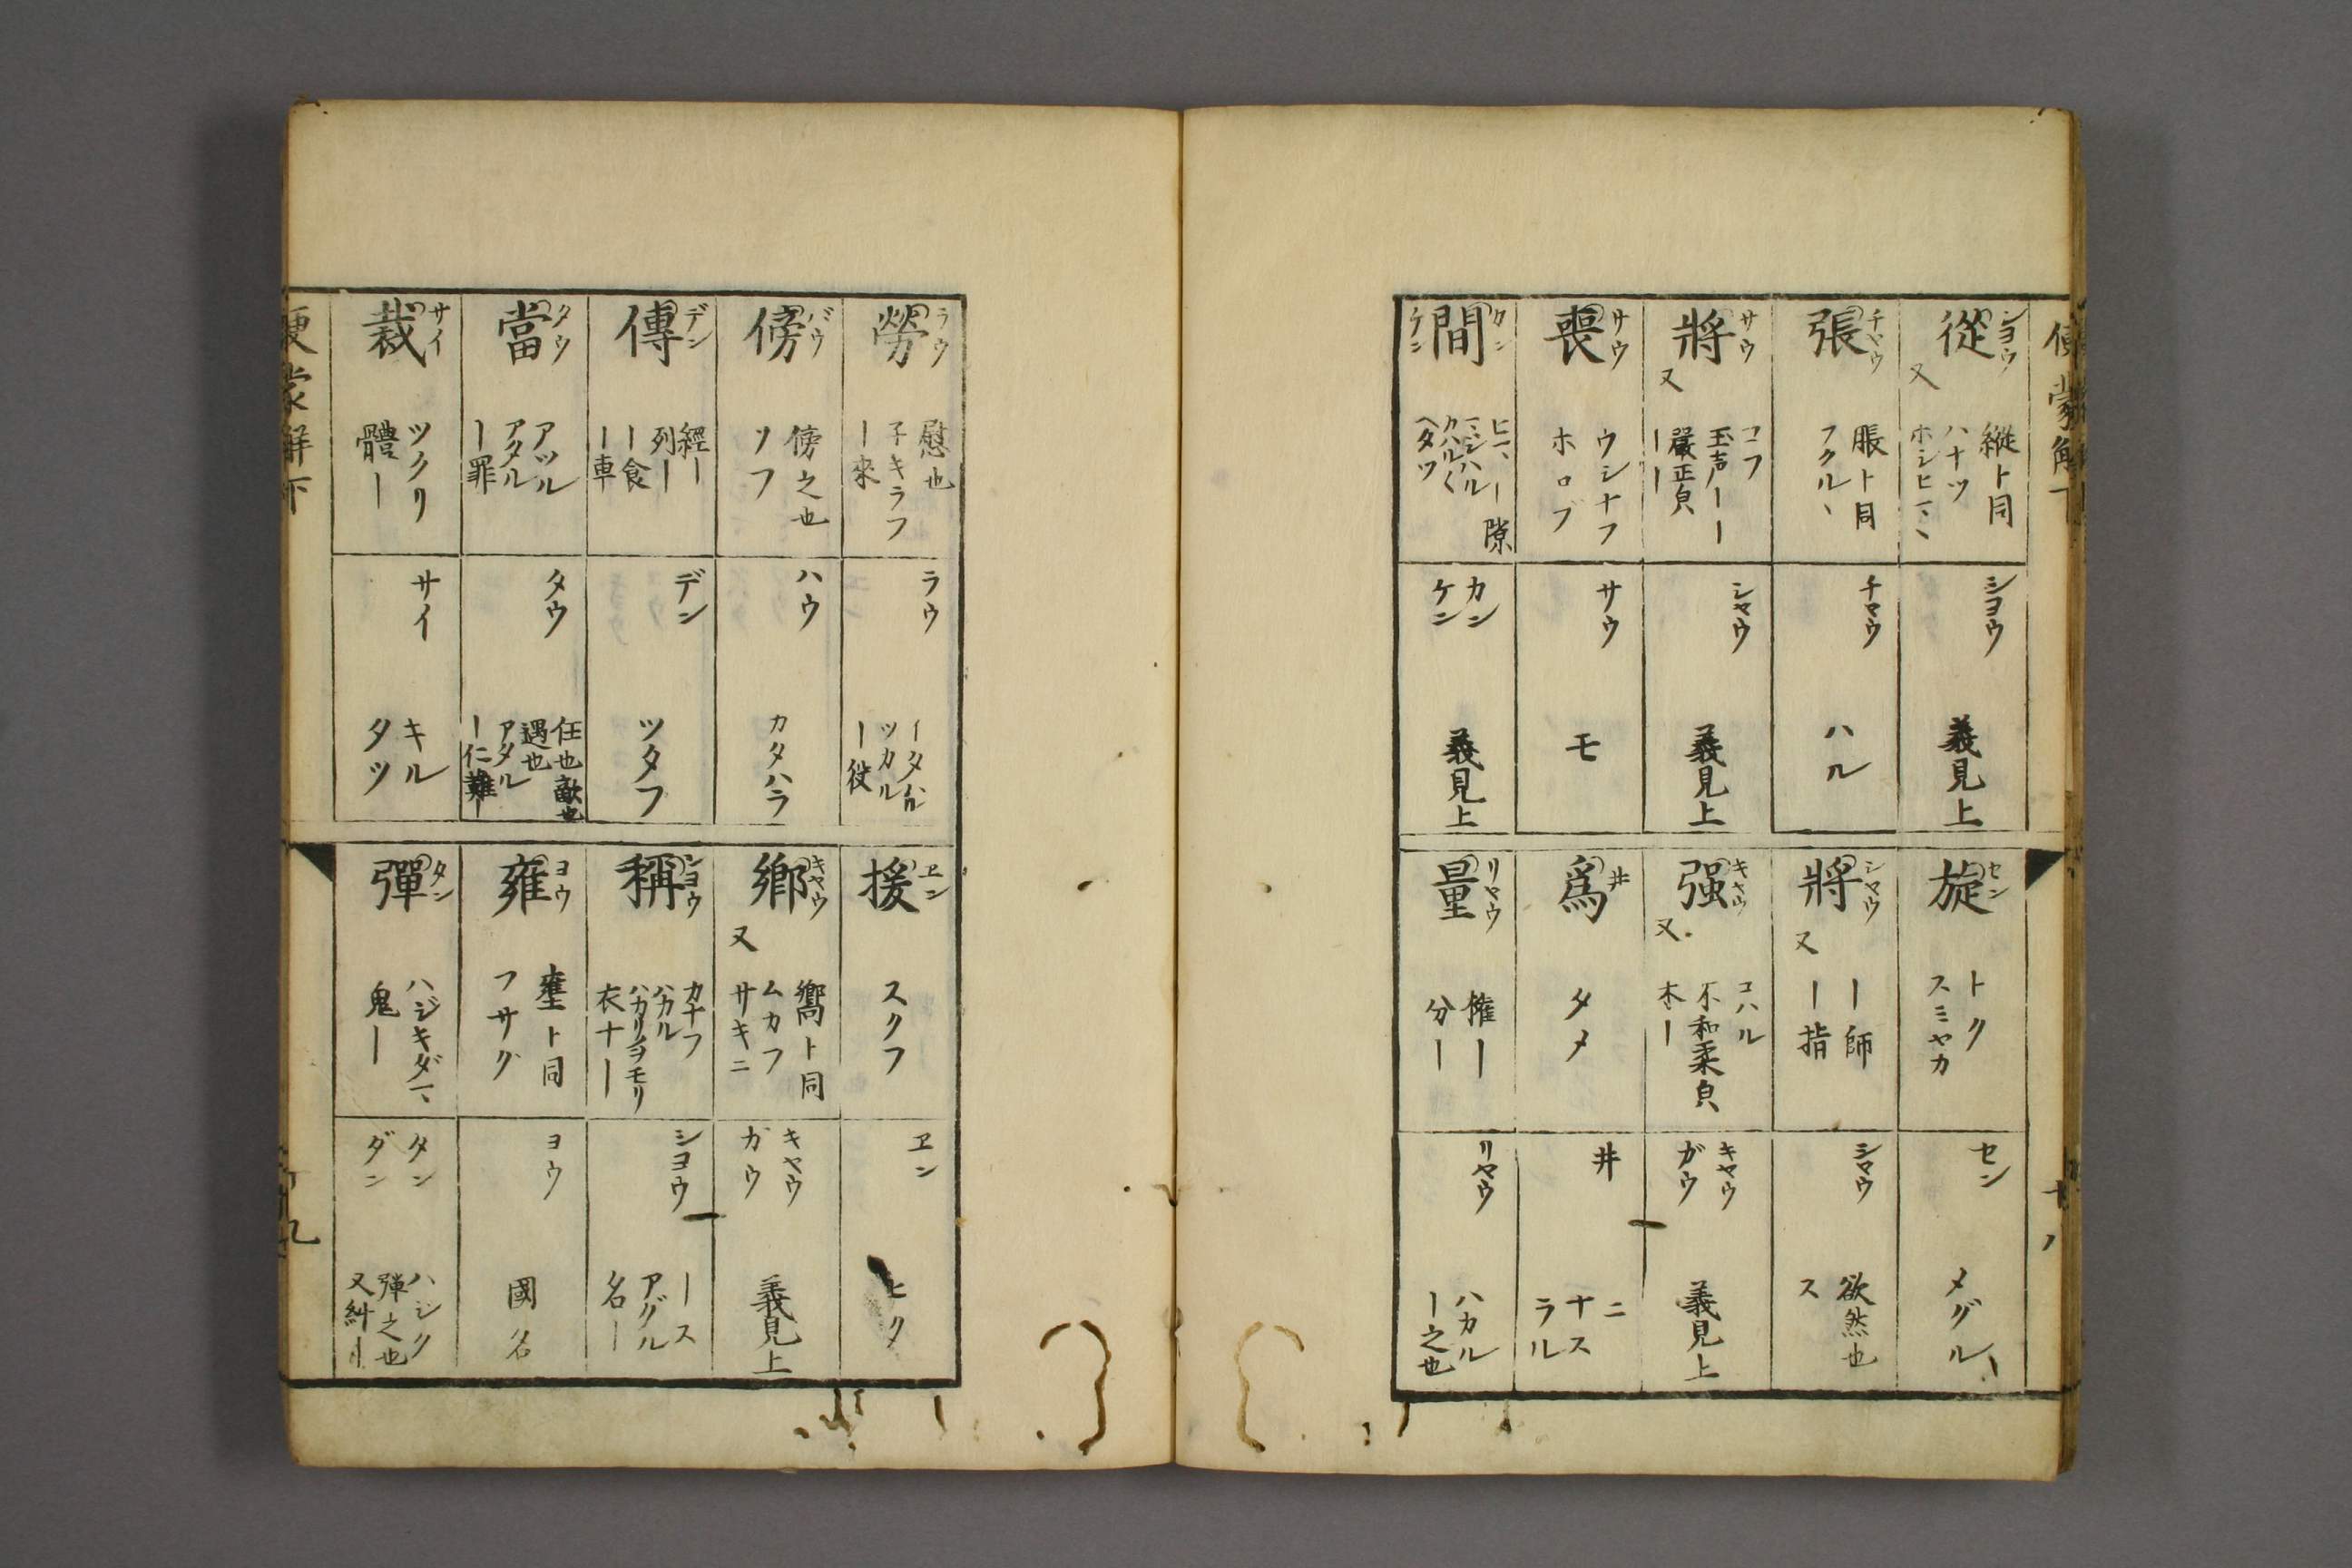 便蒙解下
從 シヨウ
又
縱ト同
ハナツ
シヨウ
義見上
張 チヤウ
脹ト同
フクル
チヤウ
ハル
將 サウ
又
コフ
玉声ーー
嚴正皃
ーー
シヤウ
義見上
喪 サウ
ウシナフ
ホロブ
サウ
モ
間 カン
ケン
ー隙
マジハル
カハル〱
ヘタツ
カン
ケン
義見上
旋 セン
トク
スミヤカ
セン
メグル
將 シヤウ
又
ー師
ー指
シヤウ
欲然也
ス
强 キヤウ
又
コハル
不和柔皃
木ー
キヤウ
ガウ
義見上
爲 井
タメ
井
ニ
ナス
ラル
量 リヤウ
權ー
分ー
リヤウ
ハカル
ー之也
勞 ラウ
慰也
子キラフ
ー來
ラウ
イタハル
ツカル
ー役
傍 バウ
傍之也
ソフ
ハウ
カタハラ
傳 デン
經ー
列ー
ー食
ー車
デン
ツタフ
當 タウ
アツル
アタル
ー罪
タウ
任也敵也
遇也
アタル
ー仁難ー
裁 サイ
ツクリ
體ー
サイ
キル
タツ
便蒙解下
援 ヱン
スクフ
ヱン
ヒク
鄕 キヤウ
又
嚮ト同
ムカフ
サキニ
キヤウ
ガウ
義見上
稱 シヨウ
カナフ
ハカル
ハカリヲモリ
衣ナー
シヨウ
ース
アグル
名ー
雍 ヨウ
壅ト同
フサグ
ヨウ
國名
彈 タン
ハジキダマ
鬼ー
タン
ダン
ハジク
彈之也
又糾ー